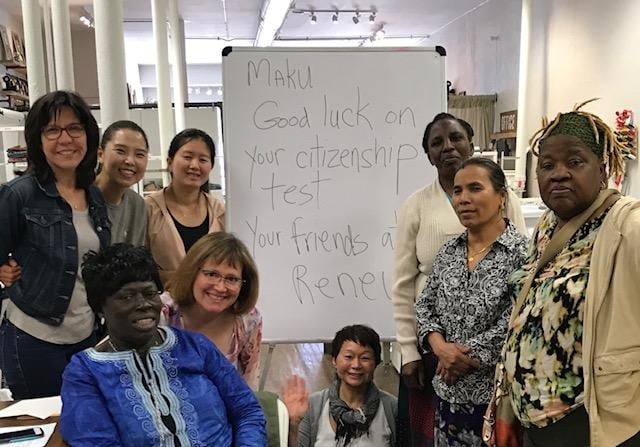 MAKU
Good luck on
your citizenship
test
Your friends at
Renew
OFFICE